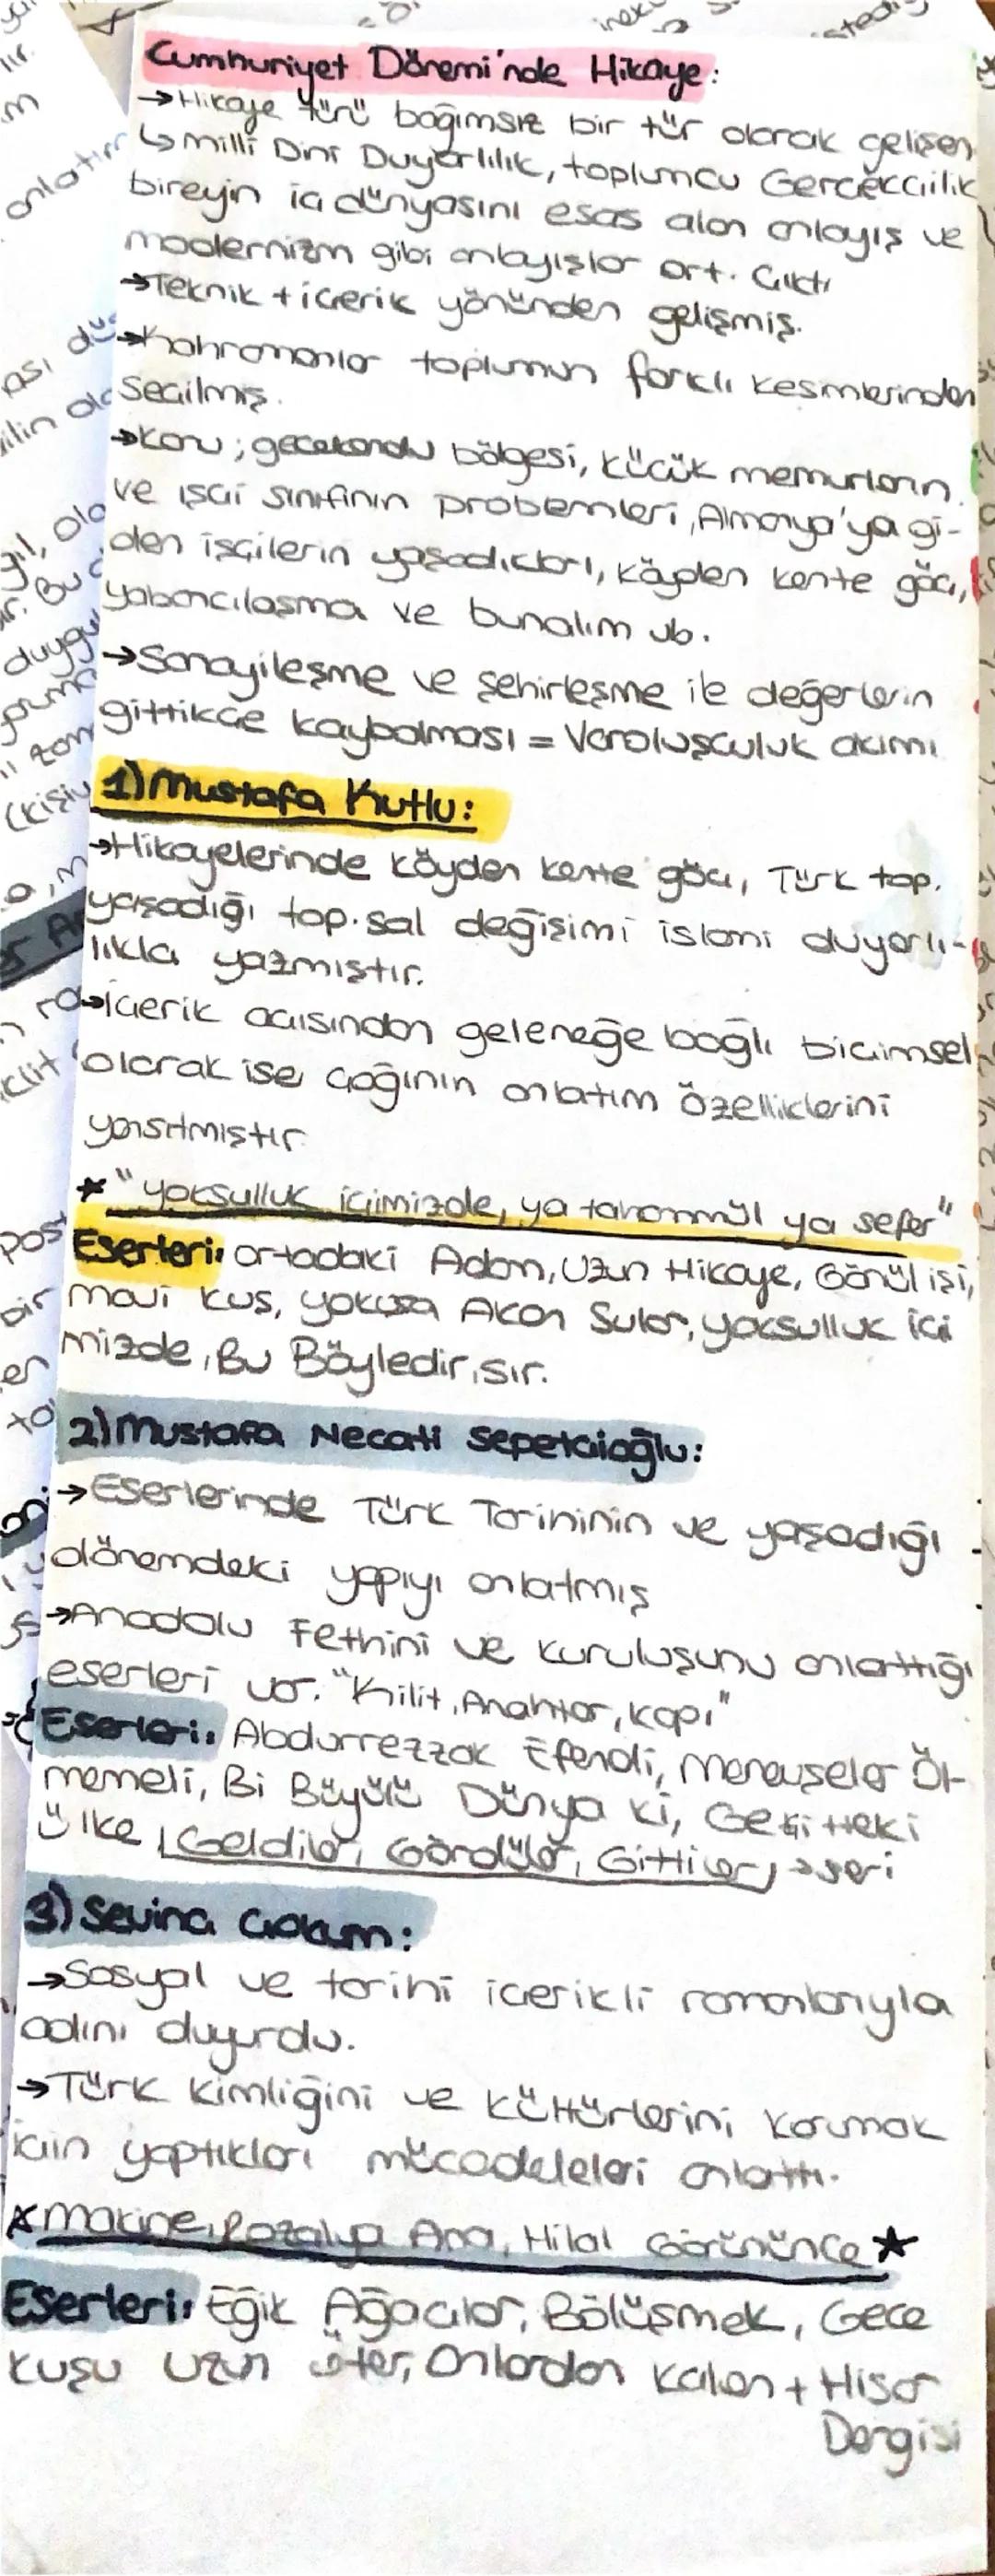 Cumhuriyet Dönemi'nde Hikaye:
→Hikaye türü bağımsız bir tür olarak gelişen
↳Milli Dini Duyarlılık, toplumcu Gerçekçilik
bireyin iç dünyasını esas alan anlayış ve
modernizm gibi anlayışlar ort. Çıktı
→Teknik + içerik yönünden gelişmiş.
→Kahramanlar toplumun farklı kesimlerinden
Seçilmiş.
→Konu; gecekondu bölgesi, küçük memurların
ve işçi sınıfının problemleri, Almanya'ya gi-
den işçilerin yaşadıkları, köyden kente göç,
yabancılaşma ve bunalım vb.
→Sanayileşme ve şehirleşme ile değerlerin
gittikçe kaybolması = Varoluşçuluk akımı
1) Mustafa Kutlu:
→Hikayelerinde köyden kente göçü, Türk top.
yaşadığı top.sal değişimi islami duyarlı-
lıkla yazmıştır.
→içerik açısından geleneğe bağlı biçimsel
olarak ise çağının anlatım özelliklerini
yansıtmıştır
★ "yoksulluk içimizde, ya tahammül ya sefer"
Eserleri: Ortadaki Adam, Uzun Hikaye, Gönül işi,
Mavi Kuş, yokuşa Akan Sular, yoksulluk içi
mizde, Bu Böyledir, Sır.
2) Mustafa Necati Sepetçioğlu:
→Eserlerinde Türk Tarihinin ve yaşadığı
dönemdeki yapıyı anlatmış
→Anadolu Fethini ve kuruluşunu anlattığı
eserleri var. "Kilit, Anahtar, Kapı"
Eserleri: Abdurrezzak Efendi, Menevşeler Öl-
memeli, Bi Büyülü Dünya ki, Geçitteki
Ülke, Geldiler, Gördüler, Gittiler → seri
3) Sevinç Çokum:
→Sosyal ve tarihi içerikli romanlarıyla
adını duyurdu.
→Türk kimliğini ve kültürlerini korumak
için yaptıkları mücadeleleri anlattı.
★Makine, Rozalya Ana, Hilal Görününce★
Eserleri: Eğik Ağaçlar, Bölüşmek, Gece
kuşu Uzun öter, Onlardan Kalan + Hisar
Dergisi